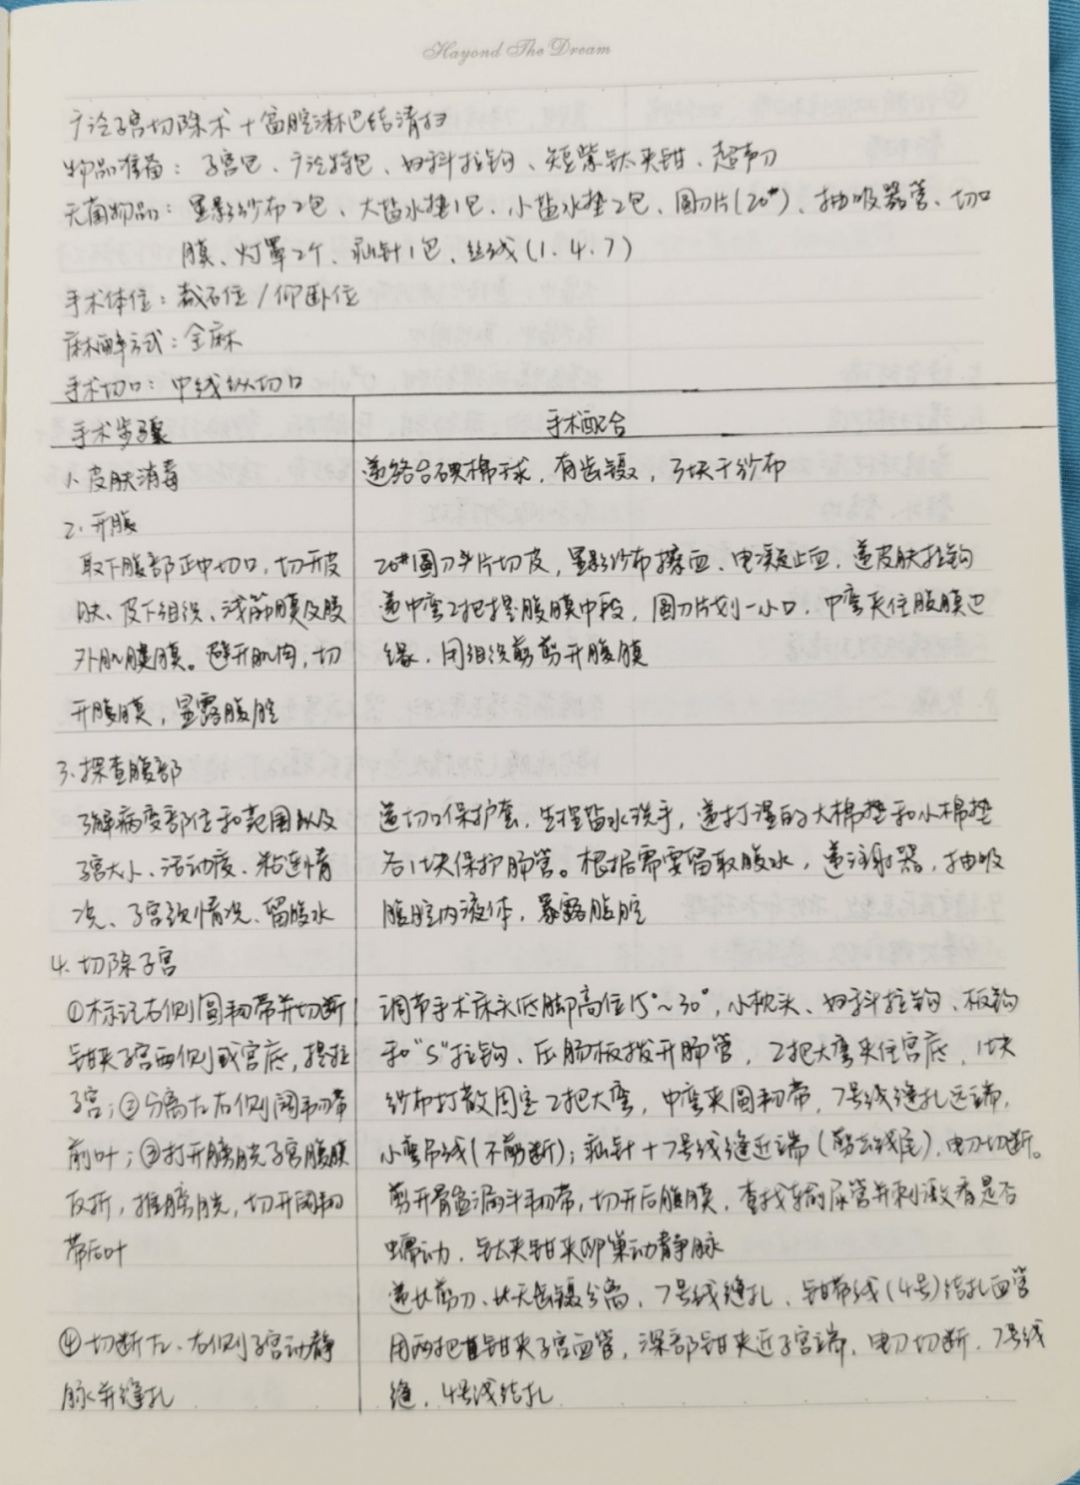 Hayond The Dream
广泛子宫切除术+盆腔淋巴结清扫
物品准备：子宫包、广泛特包、妇科拉钩、短紫钛夹钳、超声刀
无菌物品：显影纱布2包、大盐水垫1包、小盐水垫2包、圆刀片(20#)、抽吸器管、切口
膜、灯罩2个、秋针1包、丝线(1.4.7)
手术体位：截石位/仰卧位
麻醉方式：全麻
手术切口：中线纵切口
手术步骤 手术配合
1. 皮肤消毒 递络合碘棉球，有齿镊，3块干纱布
2. 开腹
取下腹部正中切口，切开皮 20#圆刀片切皮，显影纱布擦血、电凝止血、递皮肤拉钩
肤、皮下组织、浅筋膜及腹 递中弯2把提腹膜中段，圆刀片划一小口，中弯夹住腹膜边
外肌腱膜。避开肌肉，切 缘，用组织剪剪开腹膜
开腹膜，显露腹腔
3. 探查腹部
了解病变部位和范围以及 递切口保护套，生理盐水洗手，递打湿的大棉垫和小棉垫
子宫大小、活动度、粘连情 各1块保护肠管。根据需要留取腹水，递注射器，抽吸
况、子宫颈情况、留腹水 腹腔内液体，暴露腹腔
4. 切除子宫
①标记右侧圆韧带并切断 调节手术床头低脚高位15°~30°，小枕头、妇科拉钩、板钩
钳夹子宫两侧或宫底，提拉 和“S”拉钩、压肠板拨开肠管，2把大弯夹住宫底，1块
子宫；②分离左右侧阔韧带 纱布打散固定2把大弯，中弯夹圆韧带，7号线缝扎远端，
前叶；③打开膀胱子宫腹膜 小弯吊线(不剪断)；秋针+7号线缝近端(剪去线尾)，电刀切断。
反折，推膀胱，切开阔韧 剪开骨盆漏斗韧带，切开后腹膜，查找输尿管并刺激看是否
带后叶 蠕动，钛夹钳夹卵巢动静脉
递长剪刀、长无齿镊分离，7号线缝扎、钳带线(4号)结扎血管
④切断左、右侧子宫动静 用两把钳夹子宫血管，深部钳夹近子宫端，电刀切断，7号线
脉并缝扎 缝，4号线结扎